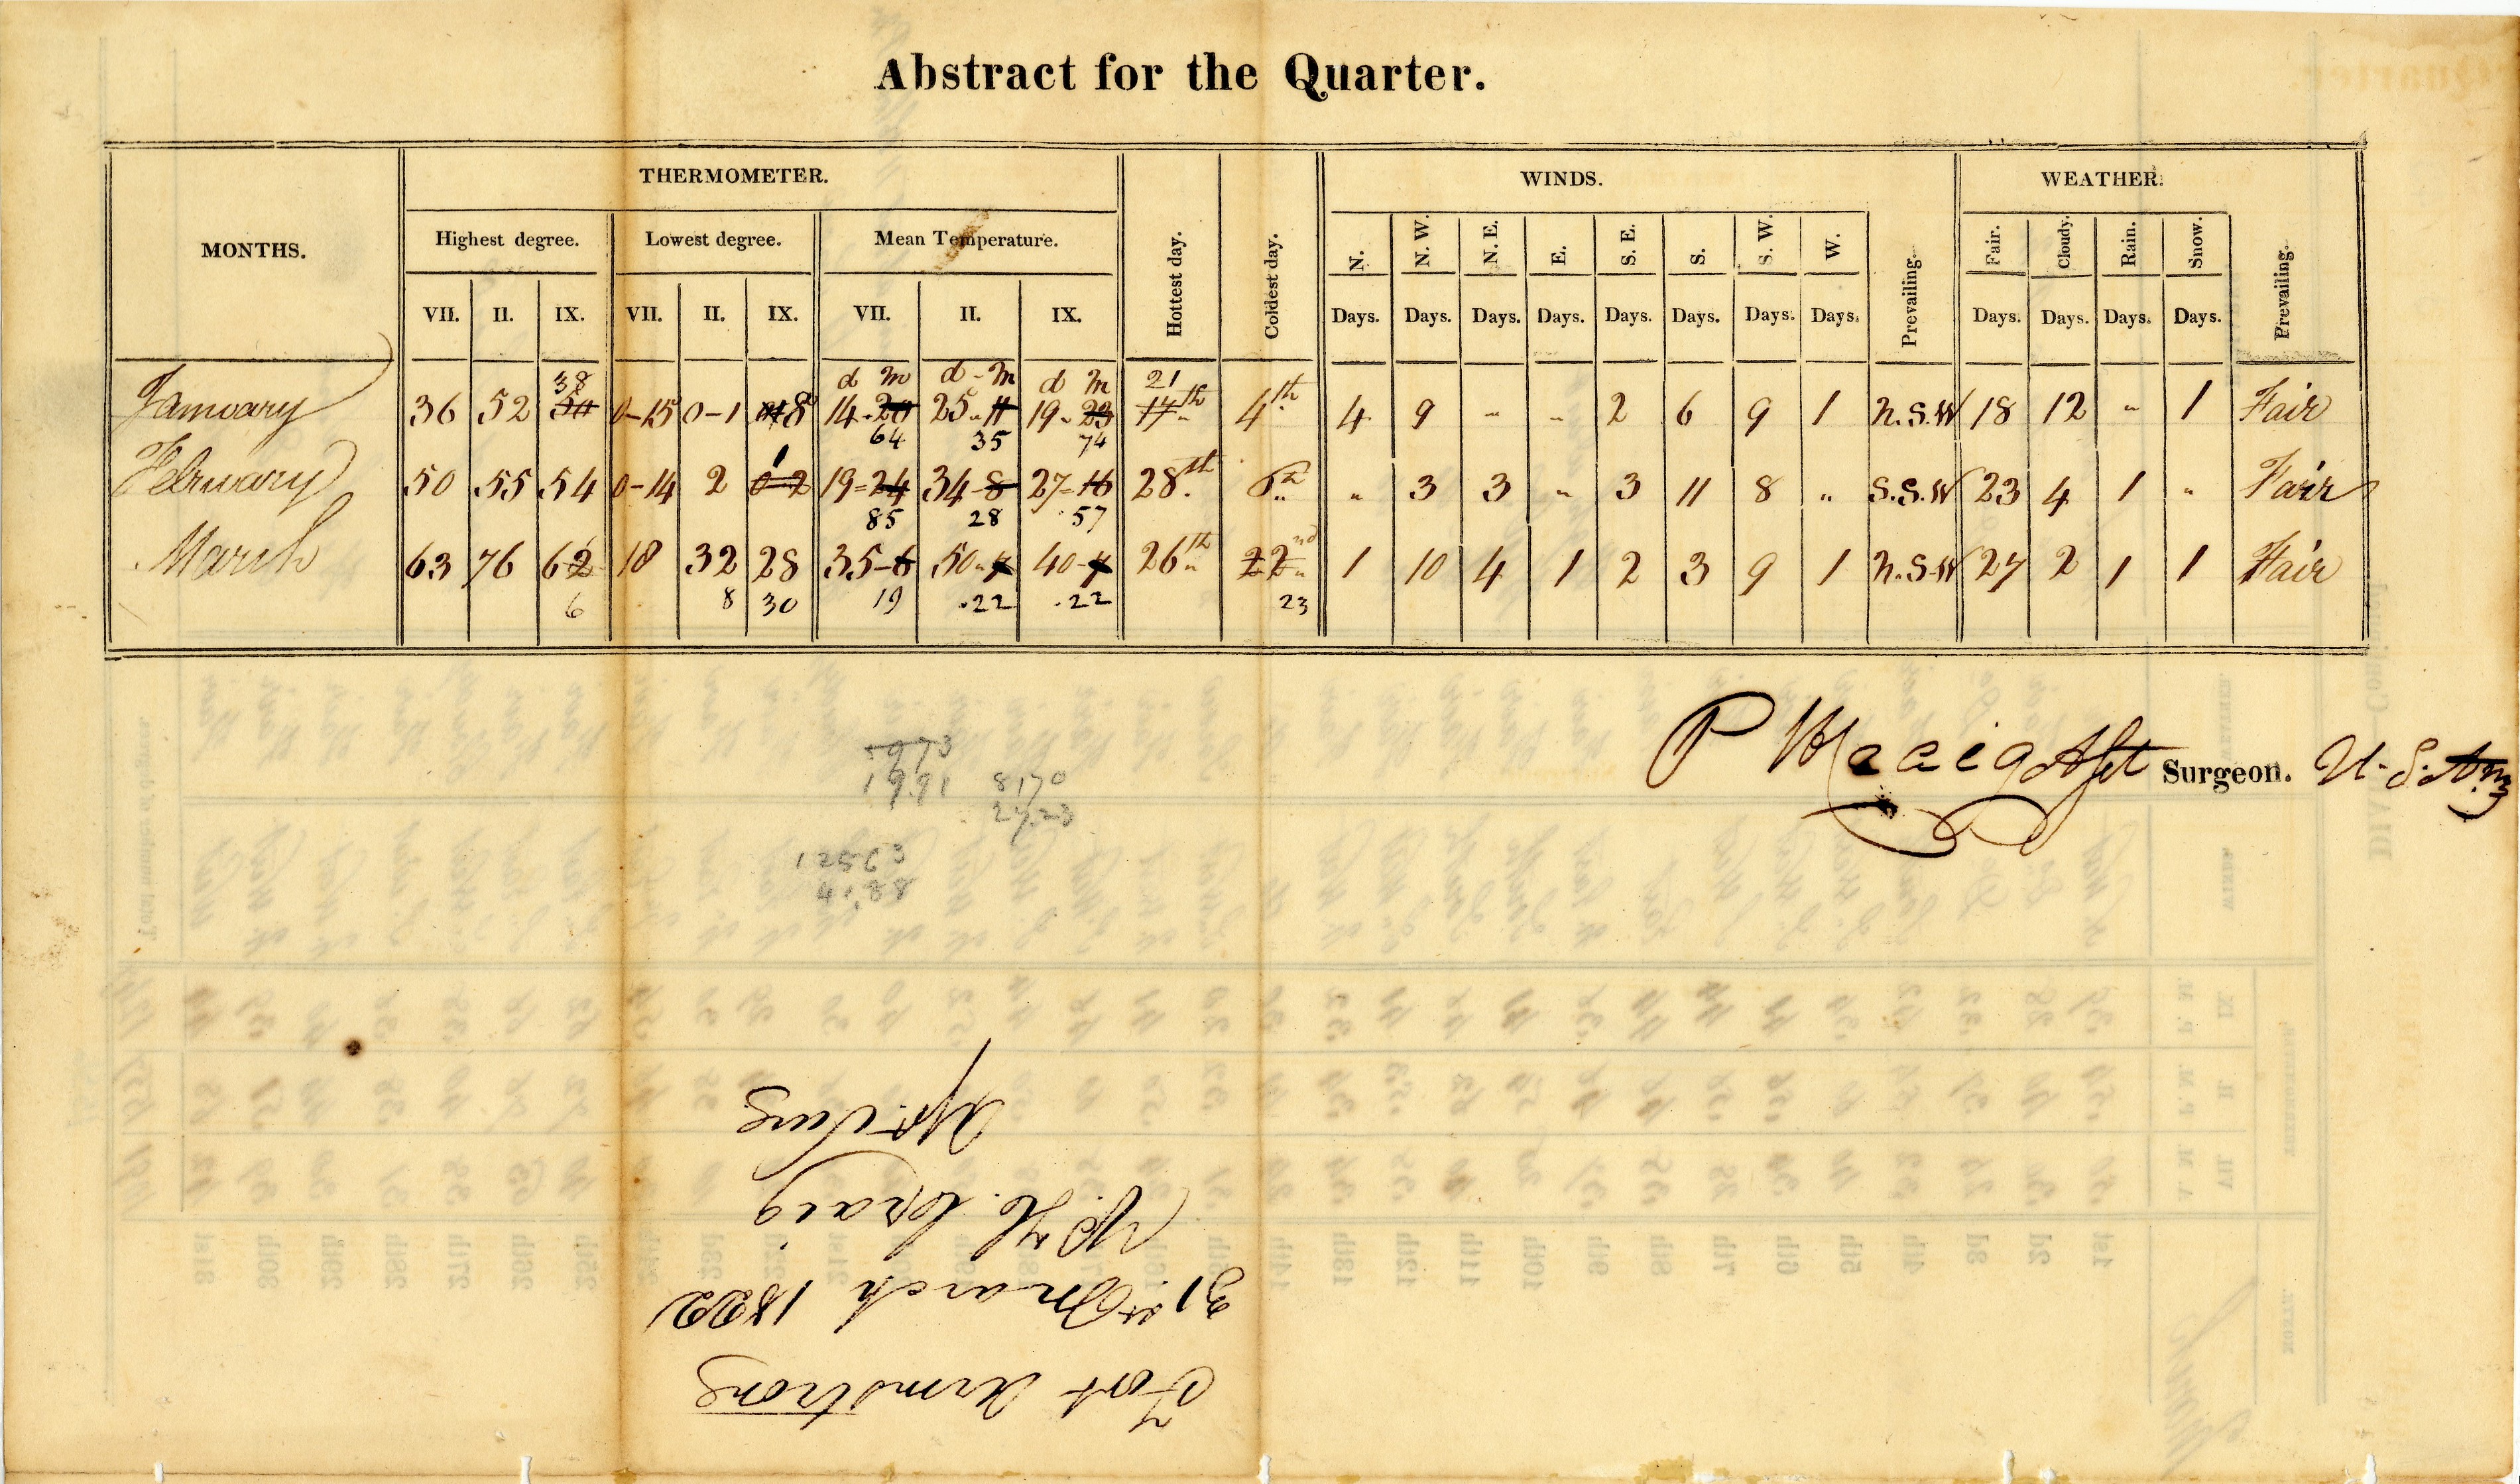 Abstract for the Quarter.
THERMOMETER. WINDS. WEATHER.
MONTHS. Highest degree. Lowest degree. Mean Temperature. Hottest day. Coldest day. N. N. W. N. E. E. S. E. S. S. W. W. Prevailing. Fair. Cloudy. Rain. Snow. Prevailing.
VII. II. IX. VII. II. IX. VII. II. IX. Days. Days. Days. Days. Days. Days. Days. Days. Days. Days. Days. Days.
38 d m d - m d m 21
January 36 52 0-15 0-1 8 14. 25. 19. 17th 4th 4 9 " " 2 6 9 1 N.S.W 18 12 " 1 Fair
64 35 74
February 50 55 54 0-14 2 0-2 19= 24 34-8 27=16 28th 6th " 3 3 " 3 11 8 " S.S.W 23 4 1 " Fair
85 28 57
March 63 76 62 18 32 28 35-6 50- 40- 26th 22nd 1 10 4 1 2 3 9 1 N.S.W 27 2 1 1 Fair
6 8 30 19 .22 .22 23
P H Craig Asst Surgeon. U. S. Army
5973
1991 8170
27.23
12563
4.88
Fort Armstrong
31st March 1822
P. H. Craig
Asst. Surg